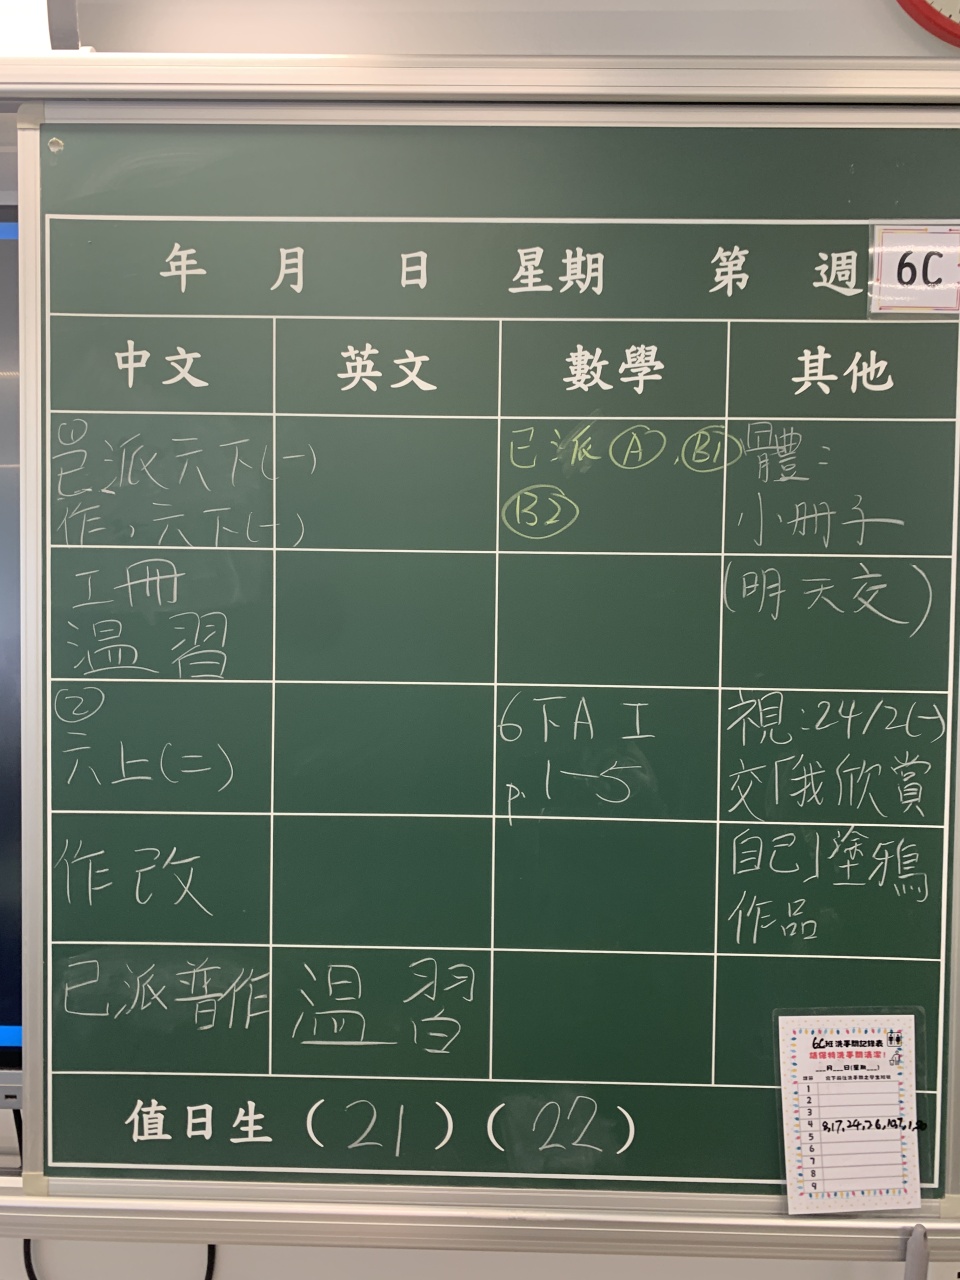 年 月 日 星期 第 週
6C
中文 英文 數學 其他
①
已派六下(一)
作，六下(一)
工冊
温習
②
六上(二)
作改
已派普作
温習
已派Ⓐ，B1
B2
6下A 工
p. 1-5
體：
小冊子
(明天交)
視：24/2(一)
交「我欣賞
自己」塗鴉
作品
值日生（21）（22）
6C班洗手間記錄表
請保持洗手間清潔！
__月__日(星期__)
1
2
3
4
5
6
7
8
9